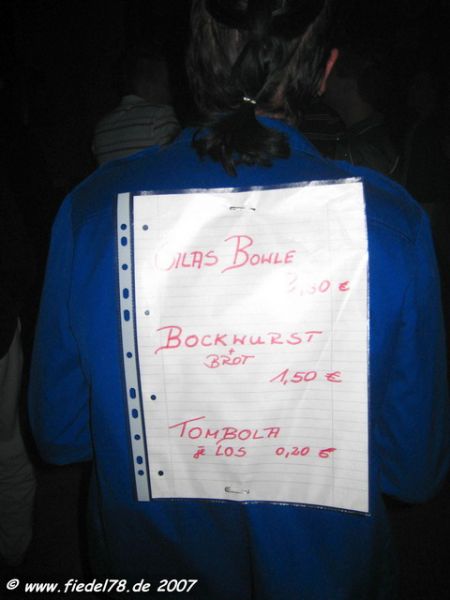 BOWLE
3,50 €
BOCKWURST
+
BROT
1,50 €
TOMBOLA
je LOS 0,20 €
© www.fiedel78.de 2007